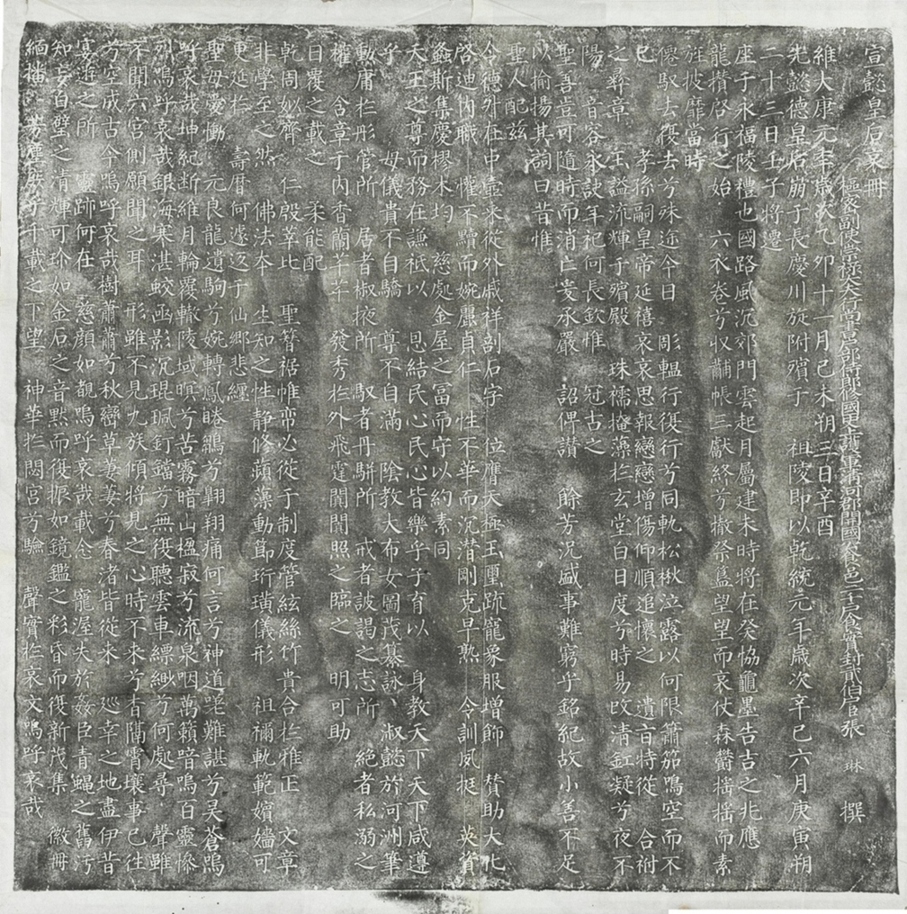 宣懿皇后哀冊
樞密副使崇祿大夫行尚書吏部侍郎修國史護軍清河郡開國公食邑二千戶食實封貳伯戶張 琳 撰
維大康元年歲次乙卯十一月己未朔三日辛酉
先懿德皇后崩于長慶川旋附殯于 祖陵即以乾統元年歲次辛巳六月庚寅朔
二十三日壬子將遷
座于永福陵禮也國路風沉郊門雲起月屬建未時將在癸恊龜墨告吉之兆應
龍攢啓行之始 六衣卷兮収黼帳三獻終兮撤祭簋望望而哀仗森欝揺揺而素
旌披靡當時
僊馭去復去兮殊途今日 彫輼行復行兮同軌松楸泣露以何限簫笳鳴空而不
已 孝孫嗣皇帝延禧哀哀思報戀戀增傷仰順追懷之 遺旨特從 合祔
之彜章 宝謚流輝于殯殿 珠襦掩藻於玄堂白日度兮時易晈清釭凝兮夜不
陽 音容永訣年祀何長欽惟 冠古之
聖善豈可隨時而消亡爰承嚴 詔俾讃 餘芳況盛事難窮乎銘紀故小善不足
以揄揚其詞曰昔惟
聖人配茲
令德外在中壼來從外戚祥剖石字 位膺天極玉璽疏寵象服增飾 賛助大化
啓迪內職 懽不黷而婉愚貞仁 性不華而沉潛剛克早熟 令訓夙挺 英資
螽斯集慶樛木均 慈處金屋之富而守以約素同
天王之尊而務在謙祗以 恩結民心民心皆樂乎子育以 身教天下天下咸遵
乎 母儀貴不自驕 尊不自滿 陰教大布女圖茂纂詠 淑懿於河洲筆
勳庸於彤管所 居者椒掖所 馭者丹駢所 戒者詖謁之志所 絕者私溺之
權 含章于內香蘭芊芊 發秀於外飛霆闐闐照之臨之 明可助
日覆之載之 柔能配
乾周姒齊 仁殷莘比 聖簪裾帷帟必從于制度管絃絲竹貴合於雅正 文章
非學至之 然 佛法本 生知之性靜修蘋藻動節珩璜儀形 祖禰軌範嬪嬙可
更延於 壽曆何遽返于仙郷悲纏
聖母慶慟 元良龍遺駒兮婉轉鳳睠鶵兮翺翔痛何言兮神道㲯難諶兮昊蒼嗚
呼哀哉坤 紀斷維月輪覆轍陵域暝兮苦霧暗山楹寂兮流泉咽萬籟音嗚百靈慘
列嗚呼哀哉銀海寒湛蛟函影沉琨珮釘鐺兮無復聽雲車縹緲兮何處尋 聲雖
不聞六宮側願聞之耳 形雖不見九族傾將見之心時不來兮者隔霄壤事已往
兮空成古今嗚呼哀哉樹蕭蕭兮秋巒草萋萋兮春渚皆從來 巡幸之地盡伊昔
宴遊之所 靈跡何在 慈顏如覩嗚呼哀哉載念 寵渥失於姦臣青蠅之舊汚
知 白璧之清輝可珍如金石之音黙而復振如鏡鑑之彩昏而復新茂集 徽冊
緬播 芳塵庶乎千載之下望 神華於閟宮兮驗 聲實於哀文嗚呼哀哉